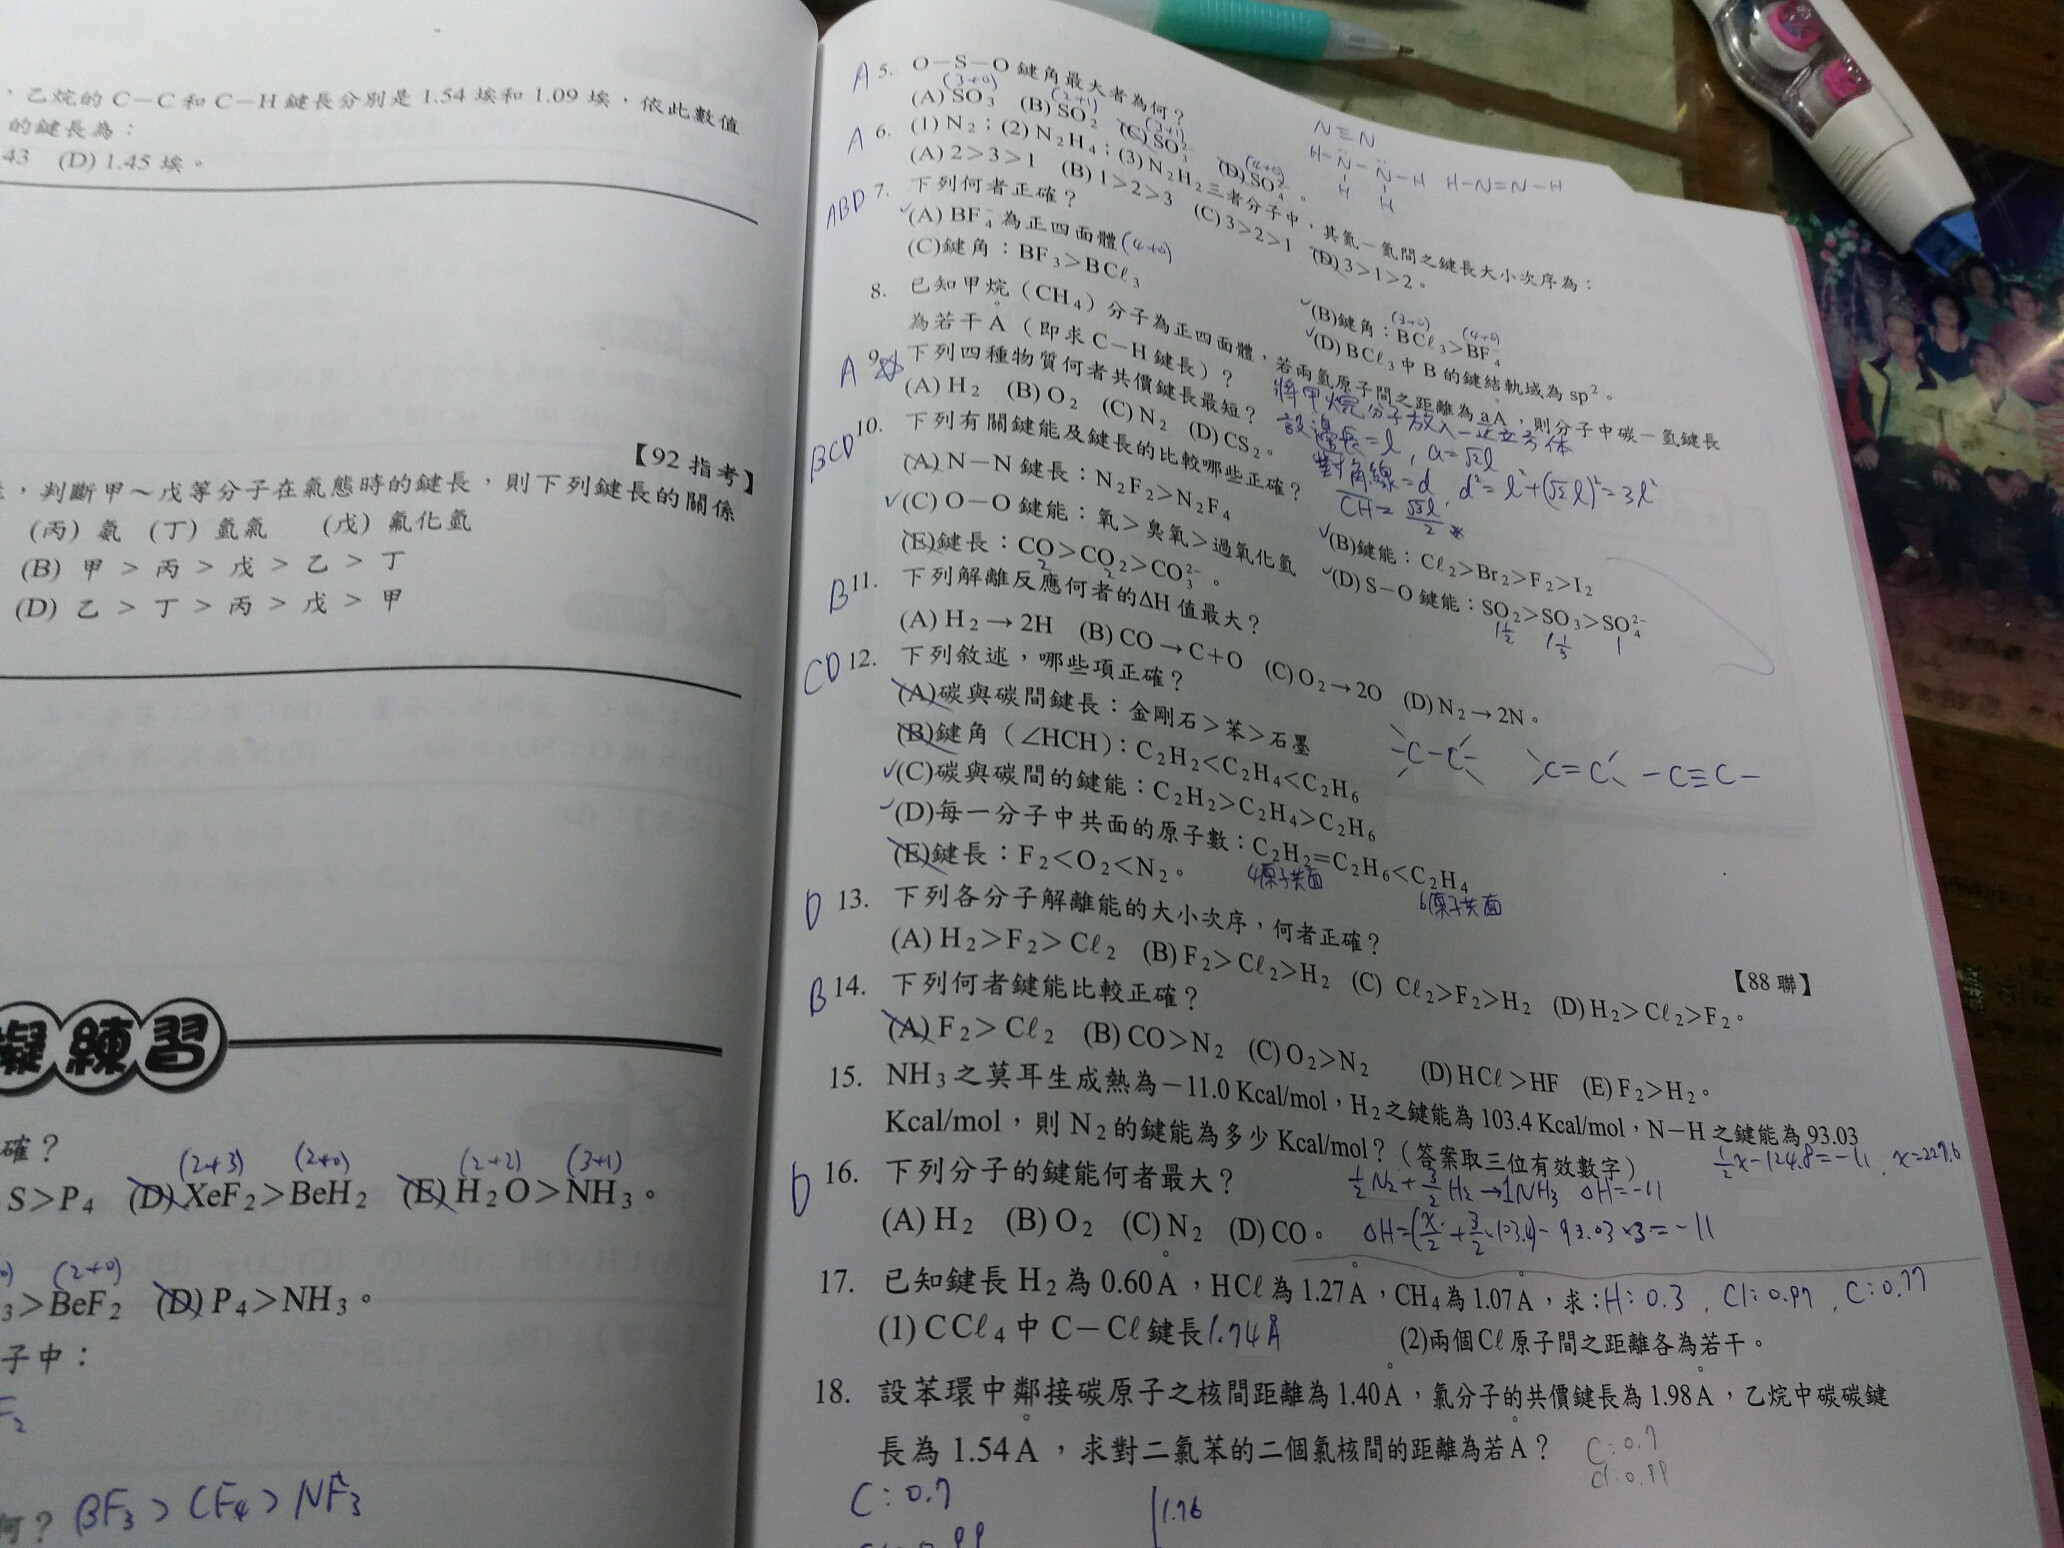 ，乙烷的C－C和C－H鍵長分別是1.54埃和1.09埃，依此數值
的鍵長為：
43 (D) 1.45埃。
【92指考】
，判斷甲～戊等分子在氣態時的鍵長，則下列鍵長的關係
(丙) 氨 (丁) 氫氣 (戊) 氟化氫
(B) 甲 > 丙 > 戊 > 乙 > 丁
(D) 乙 > 丁 > 丙 > 戊 > 甲
擬練習
確？
(2+3) (2+0) (2+2) (3+1)
S>P4 (D) XeF2>BeH2 (E) H2O>NH3。
(2+0)
3>BeF2 (D) P4>NH3。
子中：
F2
何？ BF3 > CF4 > NF3
A 5. O－S－O鍵角最大者為何？
(3+0) (2+1) (3+1) (4+0)
(A) SO3 (B) SO2 (C) SO3^2- (D) SO4^2-。
A 6. (1) N2；(2) N2H4；(3) N2H2三者分子中，其氮－氮間之鍵長大小次序為：
(A) 2>3>1 (B) 1>2>3 (C) 3>2>1 (D) 3>1>2。
N≡N
H-N-N-H H-N=N-H
H H
ABD 7. 下列何者正確？
(A) BF4^-為正四面體 (4+0) (B)鍵角：BCl3>BF4^- (3+0) (4+0)
(C)鍵角：BF3>BCl3 (D) BCl3中B的鍵結軌域為sp2。
8. 已知甲烷（CH4）分子為正四面體，若兩氫原子間之距離為aÅ，則分子中碳－氫鍵長
為若干Å（即求C－H鍵長）？
將甲烷分子放入一正立方體
設邊長=l, a=√2l
對角線=d, d²=l²+(√2l)²=3l²
CH=√3l/2
A 9. 下列四種物質何者共價鍵長最短？
(A) H2 (B) O2 (C) N2 (D) CS2。
BCD 10. 下列有關鍵能及鍵長的比較哪些正確？
(A) N－N鍵長：N2F2>N2F4 (B)鍵能：Cl2>Br2>F2>I2
(C) O－O鍵能：氧>臭氧>過氧化氫 (D) S－O鍵能：SO2>SO3>SO4^2-
1½ 1⅓ 1
(E)鍵長：CO>CO2>CO3^2-。
2 2
B 11. 下列解離反應何者的ΔH值最大？
(A) H2→2H (B) CO→C+O (C) O2→2O (D) N2→2N。
CD 12. 下列敘述，哪些項正確？
(A)碳與碳間鍵長：金剛石>苯>石墨
(B)鍵角（∠HCH）：C2H2<C2H4<C2H6
(C)碳與碳間的鍵能：C2H2>C2H4>C2H6
(D)每一分子中共面的原子數：C2H2=C2H6<C2H4
4原子共面 6原子共面
(E)鍵長：F2<O2<N2。
-C-C- C=C -C≡C-
D 13. 下列各分子解離能的大小次序，何者正確？
【88聯】
(A) H2>F2>Cl2 (B) F2>Cl2>H2 (C) Cl2>F2>H2 (D) H2>Cl2>F2。
B 14. 下列何者鍵能比較正確？
(A) F2>Cl2 (B) CO>N2 (C) O2>N2 (D) HCl>HF (E) F2>H2。
15. NH3之莫耳生成熱為－11.0 Kcal/mol，H2之鍵能為103.4 Kcal/mol，N－H之鍵能為93.03
Kcal/mol，則N2的鍵能為多少Kcal/mol？（答案取三位有效數字）
½x-124.8=-11, x=227.6
½N2+3/2H2→1NH3 ΔH=-11
ΔH=(x/2+3/2×103.4)-93.03×3=-11
D 16. 下列分子的鍵能何者最大？
(A) H2 (B) O2 (C) N2 (D) CO。
17. 已知鍵長H2為0.60Å，HCl為1.27Å，CH4為1.07Å，求： H: 0.3, Cl: 0.97, C: 0.77
(1) CCl4中C－Cl鍵長 1.74Å (2)兩個Cl原子間之距離各為若干。
18. 設苯環中鄰接碳原子之核間距離為1.40Å，氯分子的共價鍵長為1.98Å，乙烷中碳碳鍵
長為1.54Å，求對二氯苯的二個氯核間的距離為若Å？
C: 0.7
Cl: 0.99
C: 0.7
1.76